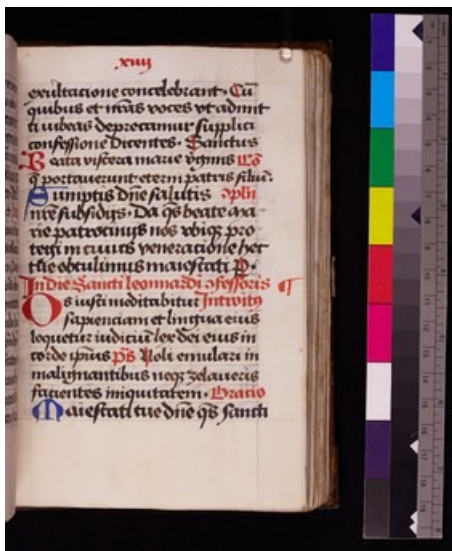 xiiij
exultacione concelebrant. Cū
quibus et nr̄as voces vt admit
ti iubeas deprecamur supplici
confessione Dicentes. Sanctus
Beata viscera marie v̄ginis Cō
q̄ portauerunt eterni patris filiū.
Sumptis dn̄e salutis ꝯpln̄
nr̄e subsidijs. Da q̄s beate ma
rie patrocinijs nos vbiqꝫ pro
tegi in cuius veneratione hec
tue obtulimus maiestati P̱.
In die Sancti leonardi ꝯfessoris ¶
Os iusti meditabitur Introitꝰ
sapienciam et lingua eius
loquetur iudiciū lex dei eius in
corde ipsius p̄s Noli emulari in
malignantibus neqꝫ zelaueris
facientes iniquitatem. Oracio
Maiestati tue dn̄e q̄s sancti